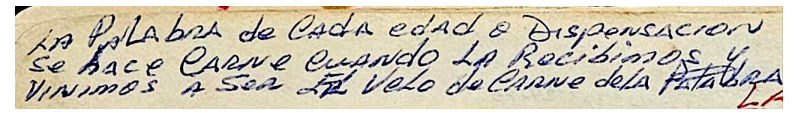 LA PALAbRA de CADA edAd o DISpeNSACION
Se hACe CARNe CUANDO LA Recibimos y
VINIMOS A SeR EL VeLo de CARNe de lA PALAbRA
LA